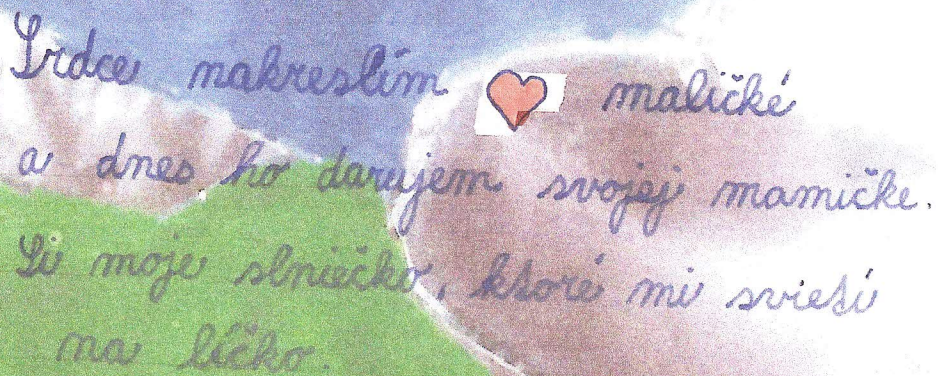 Srdce nakreslím maličké
a dnes ho darujem svojej mamičke.
Si moje slniečko, ktoré mi svieti
na líčko.